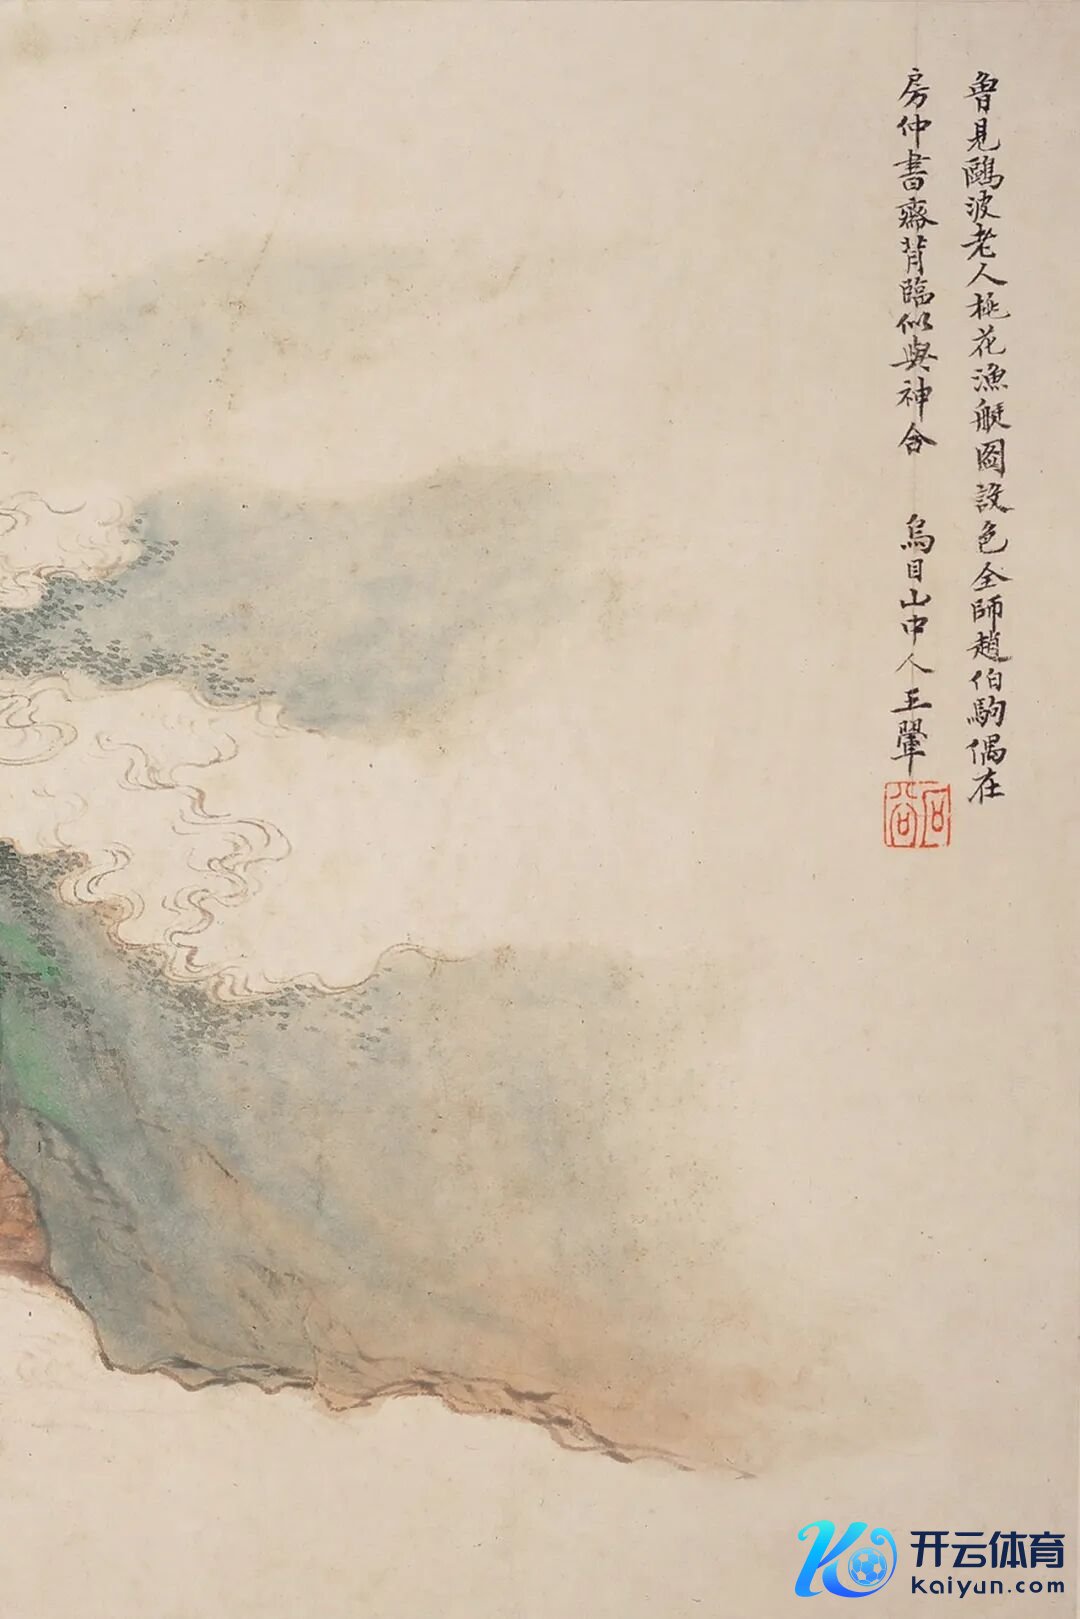 曾見鷗波老人桃花漁艇圖設色全師趙伯駒偶在
房仲書齋背臨似與神合 烏目山中人王翬
石谷
开云体育
kaiyun.com